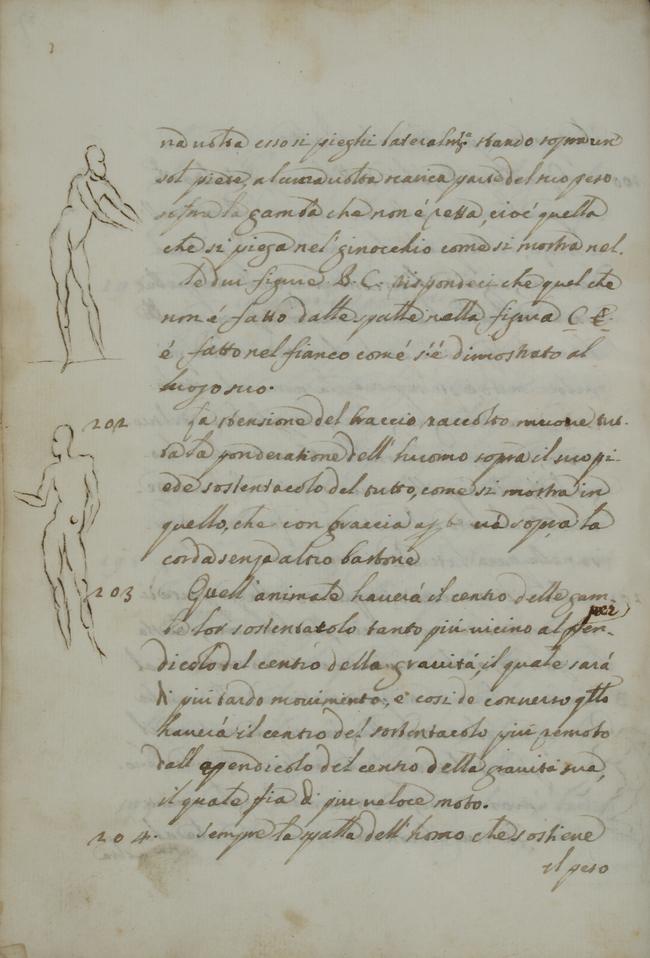 na volta esso si pieghi lateralmte. stando sopra un
sol piede, alcuna volta scarica parte del suo peso
sopra la gamba che non é retta, cioé quella
che si piega nel ginocchio come si mostra nel-
le dui figure B. C. rispondeci che quel che
non é fatto dalle spalle nella figura C
é fatto nel fianco com'é s'é dimostrato al
luogo suo.
202 La stensione del braccio raccolto muove tut-
ta la ponderatione dell' huomo sopra il suo pi-
ede sostentacolo del tutto, come si mostra in
quello, che con braccia va sopra la
corda senza altro bastone
203 Quell' animale haverá il centro delle gam-
be lor sostentacolo tanto piú vicino al per-
dicolo del centro della gravitá, il quale sará
di piu tardo movimento, e cosi de converso qllo
haverá il centro del sostentacolo piú remoto
dall del centro della gravitá sua,
il quale fia di piu veloce moto.
204. Sempre la spalla dell' homo che sostiene
il peso